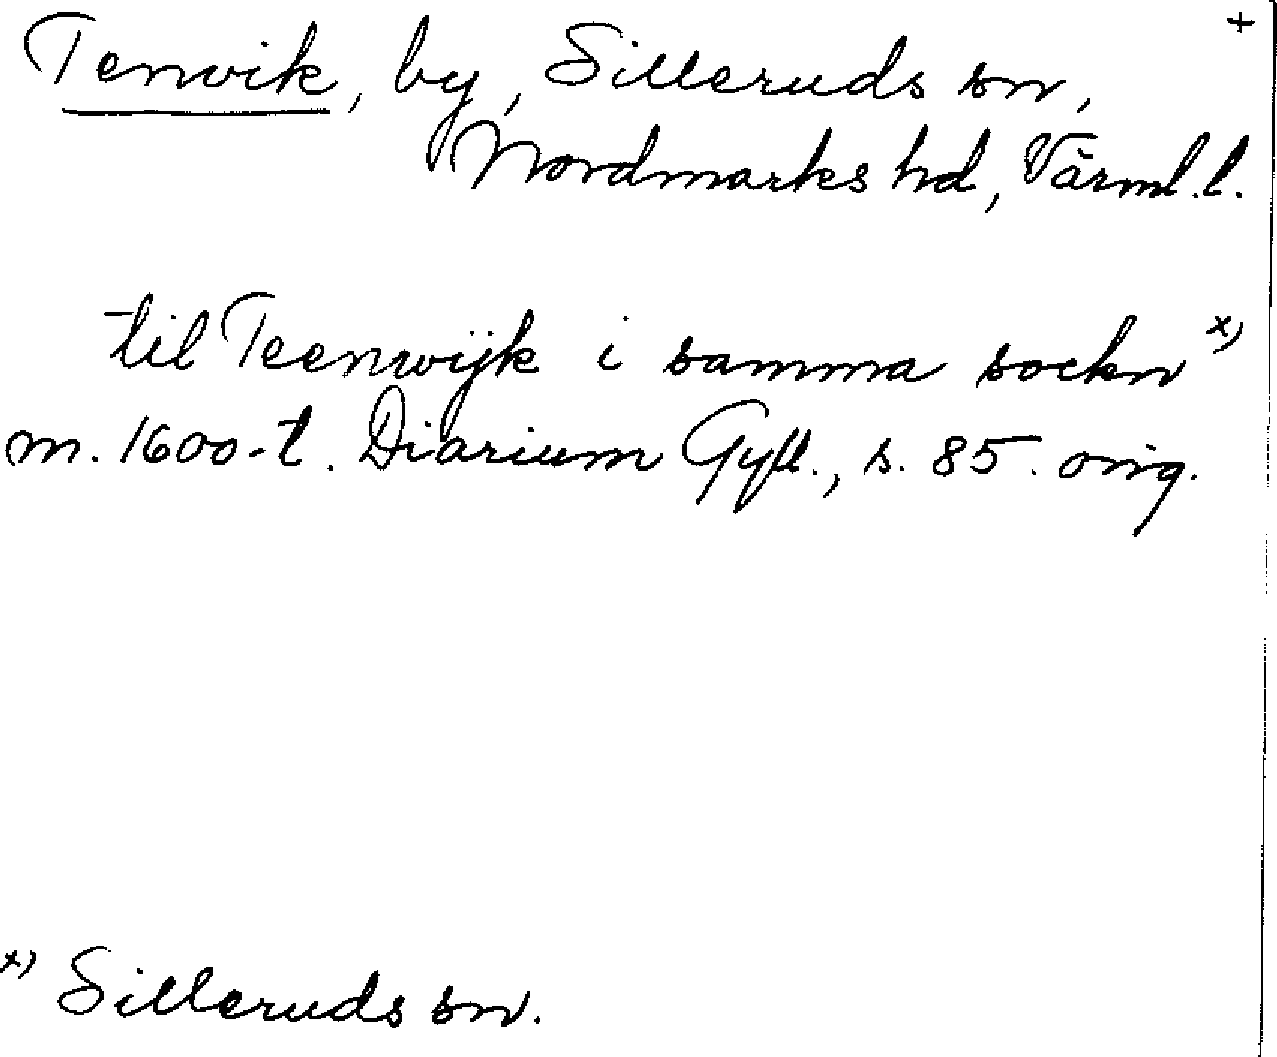 +
Tenvik, by, Silleruds sn,
Nordmarks hd, Värml. l.
til Teenwijk i samma sockn x)
m. 1600-t. Diarium Gyll., s. 85. orig.
x) Silleruds sn.